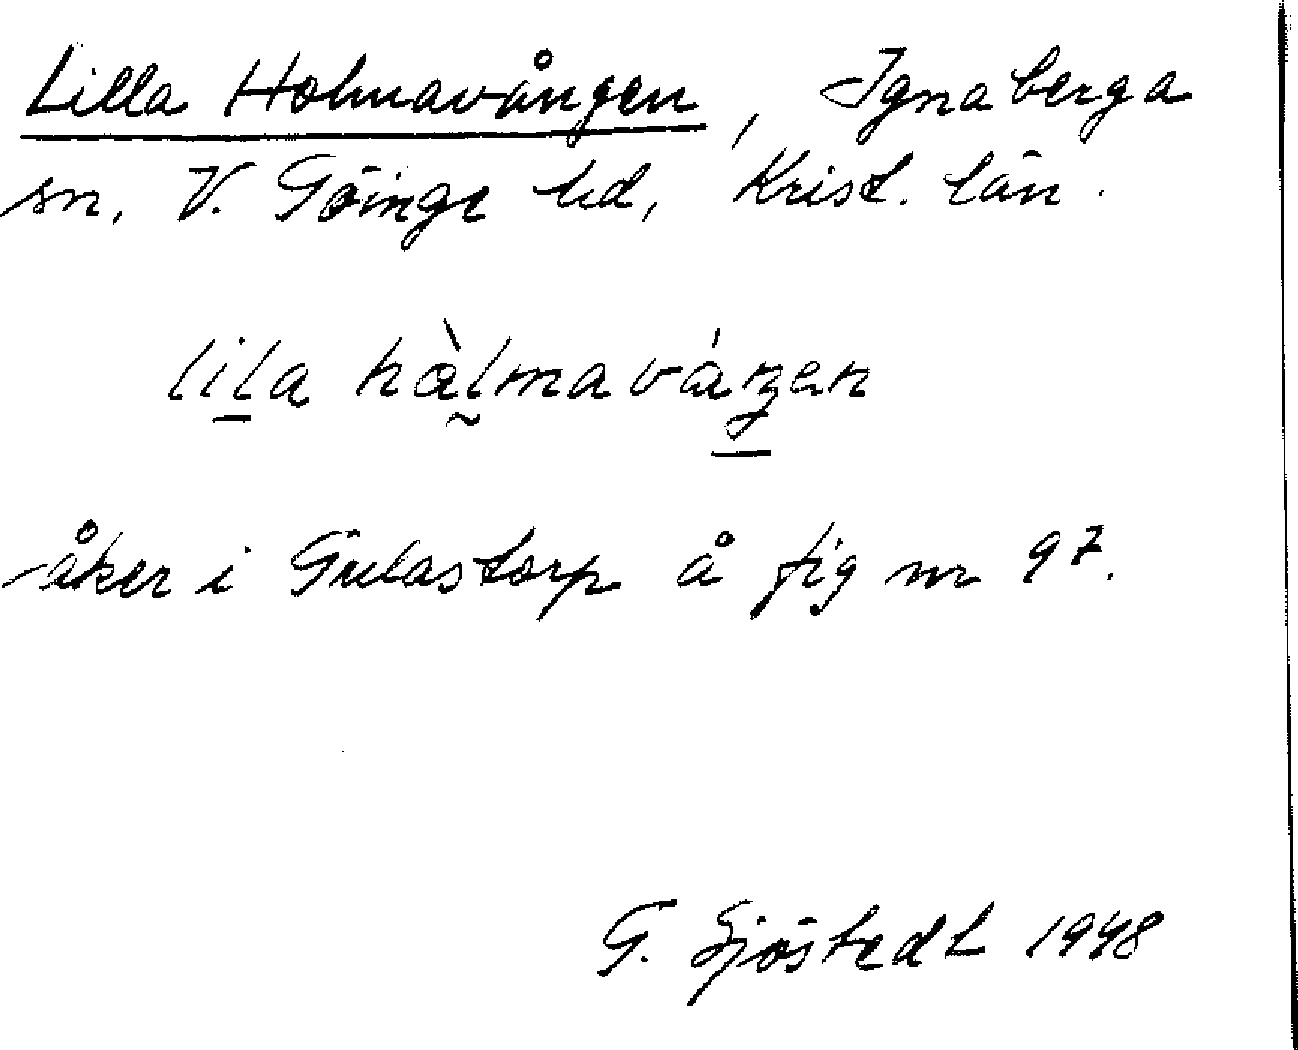 Lilla Holmavången, Ignaberga
sn, V. Göinge hd, Krist. län.
lila hàlmaváŋen
åker i Gulastorp å fig nr 97.
G. Sjöstedt 1948